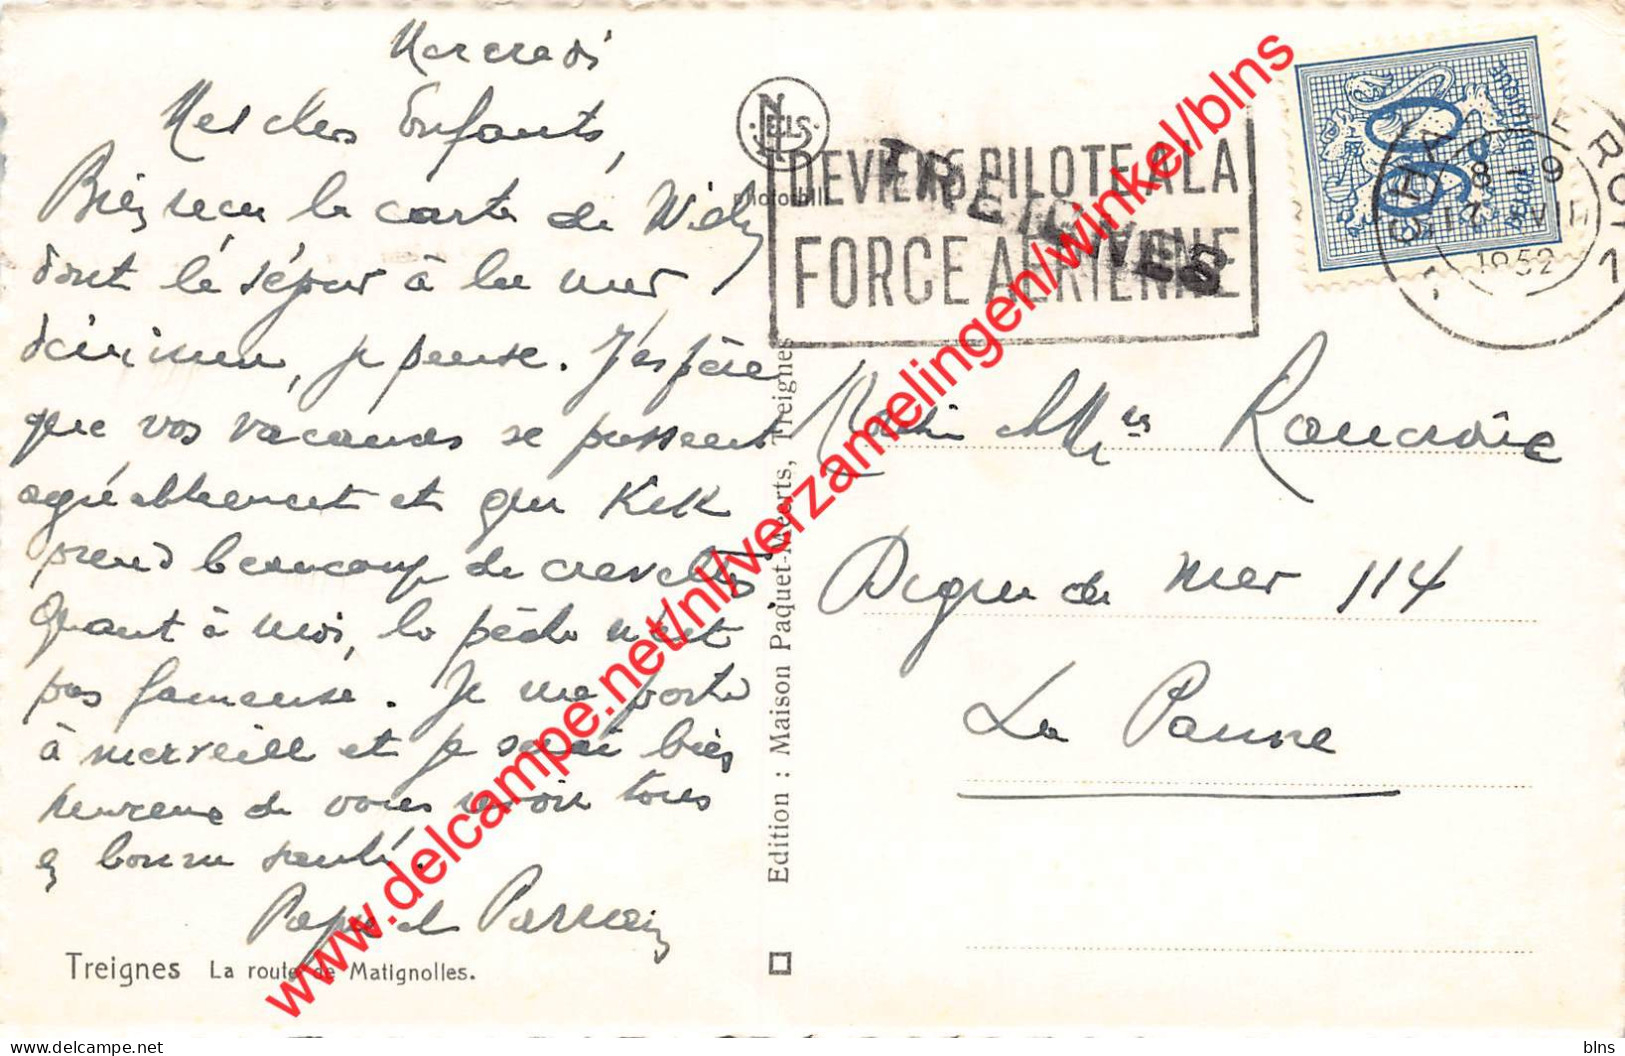 Mercredi
Mes chers Enfants,
Bien reçu la carte de Willy
dont le séjour à la mer
, je pense. J'espère
que vos vacances se passent
agréablement et que Kek
prend beaucoup de crevettes
Quant à moi, la pêche n'est
pas fameuse. Je me porte
à merveille et je serai bien
heureux de vous revoir tous
en bonne santé.
Papa et Parrain
Treignes La route de Matignolles.
NELS
Photothill
Edition : Maison Paquet-Meerts, Treignes
DEVIENS PILOTE A LA
FORCE AERIENNE
TREIGNES
90
BELGIQUE
1952
1
Mrs Roucroix
Digue de Mer 114
La Panne
www.delcampe.net/nl/verzamelingen/winkel/blns
www.delcampe.net
blns